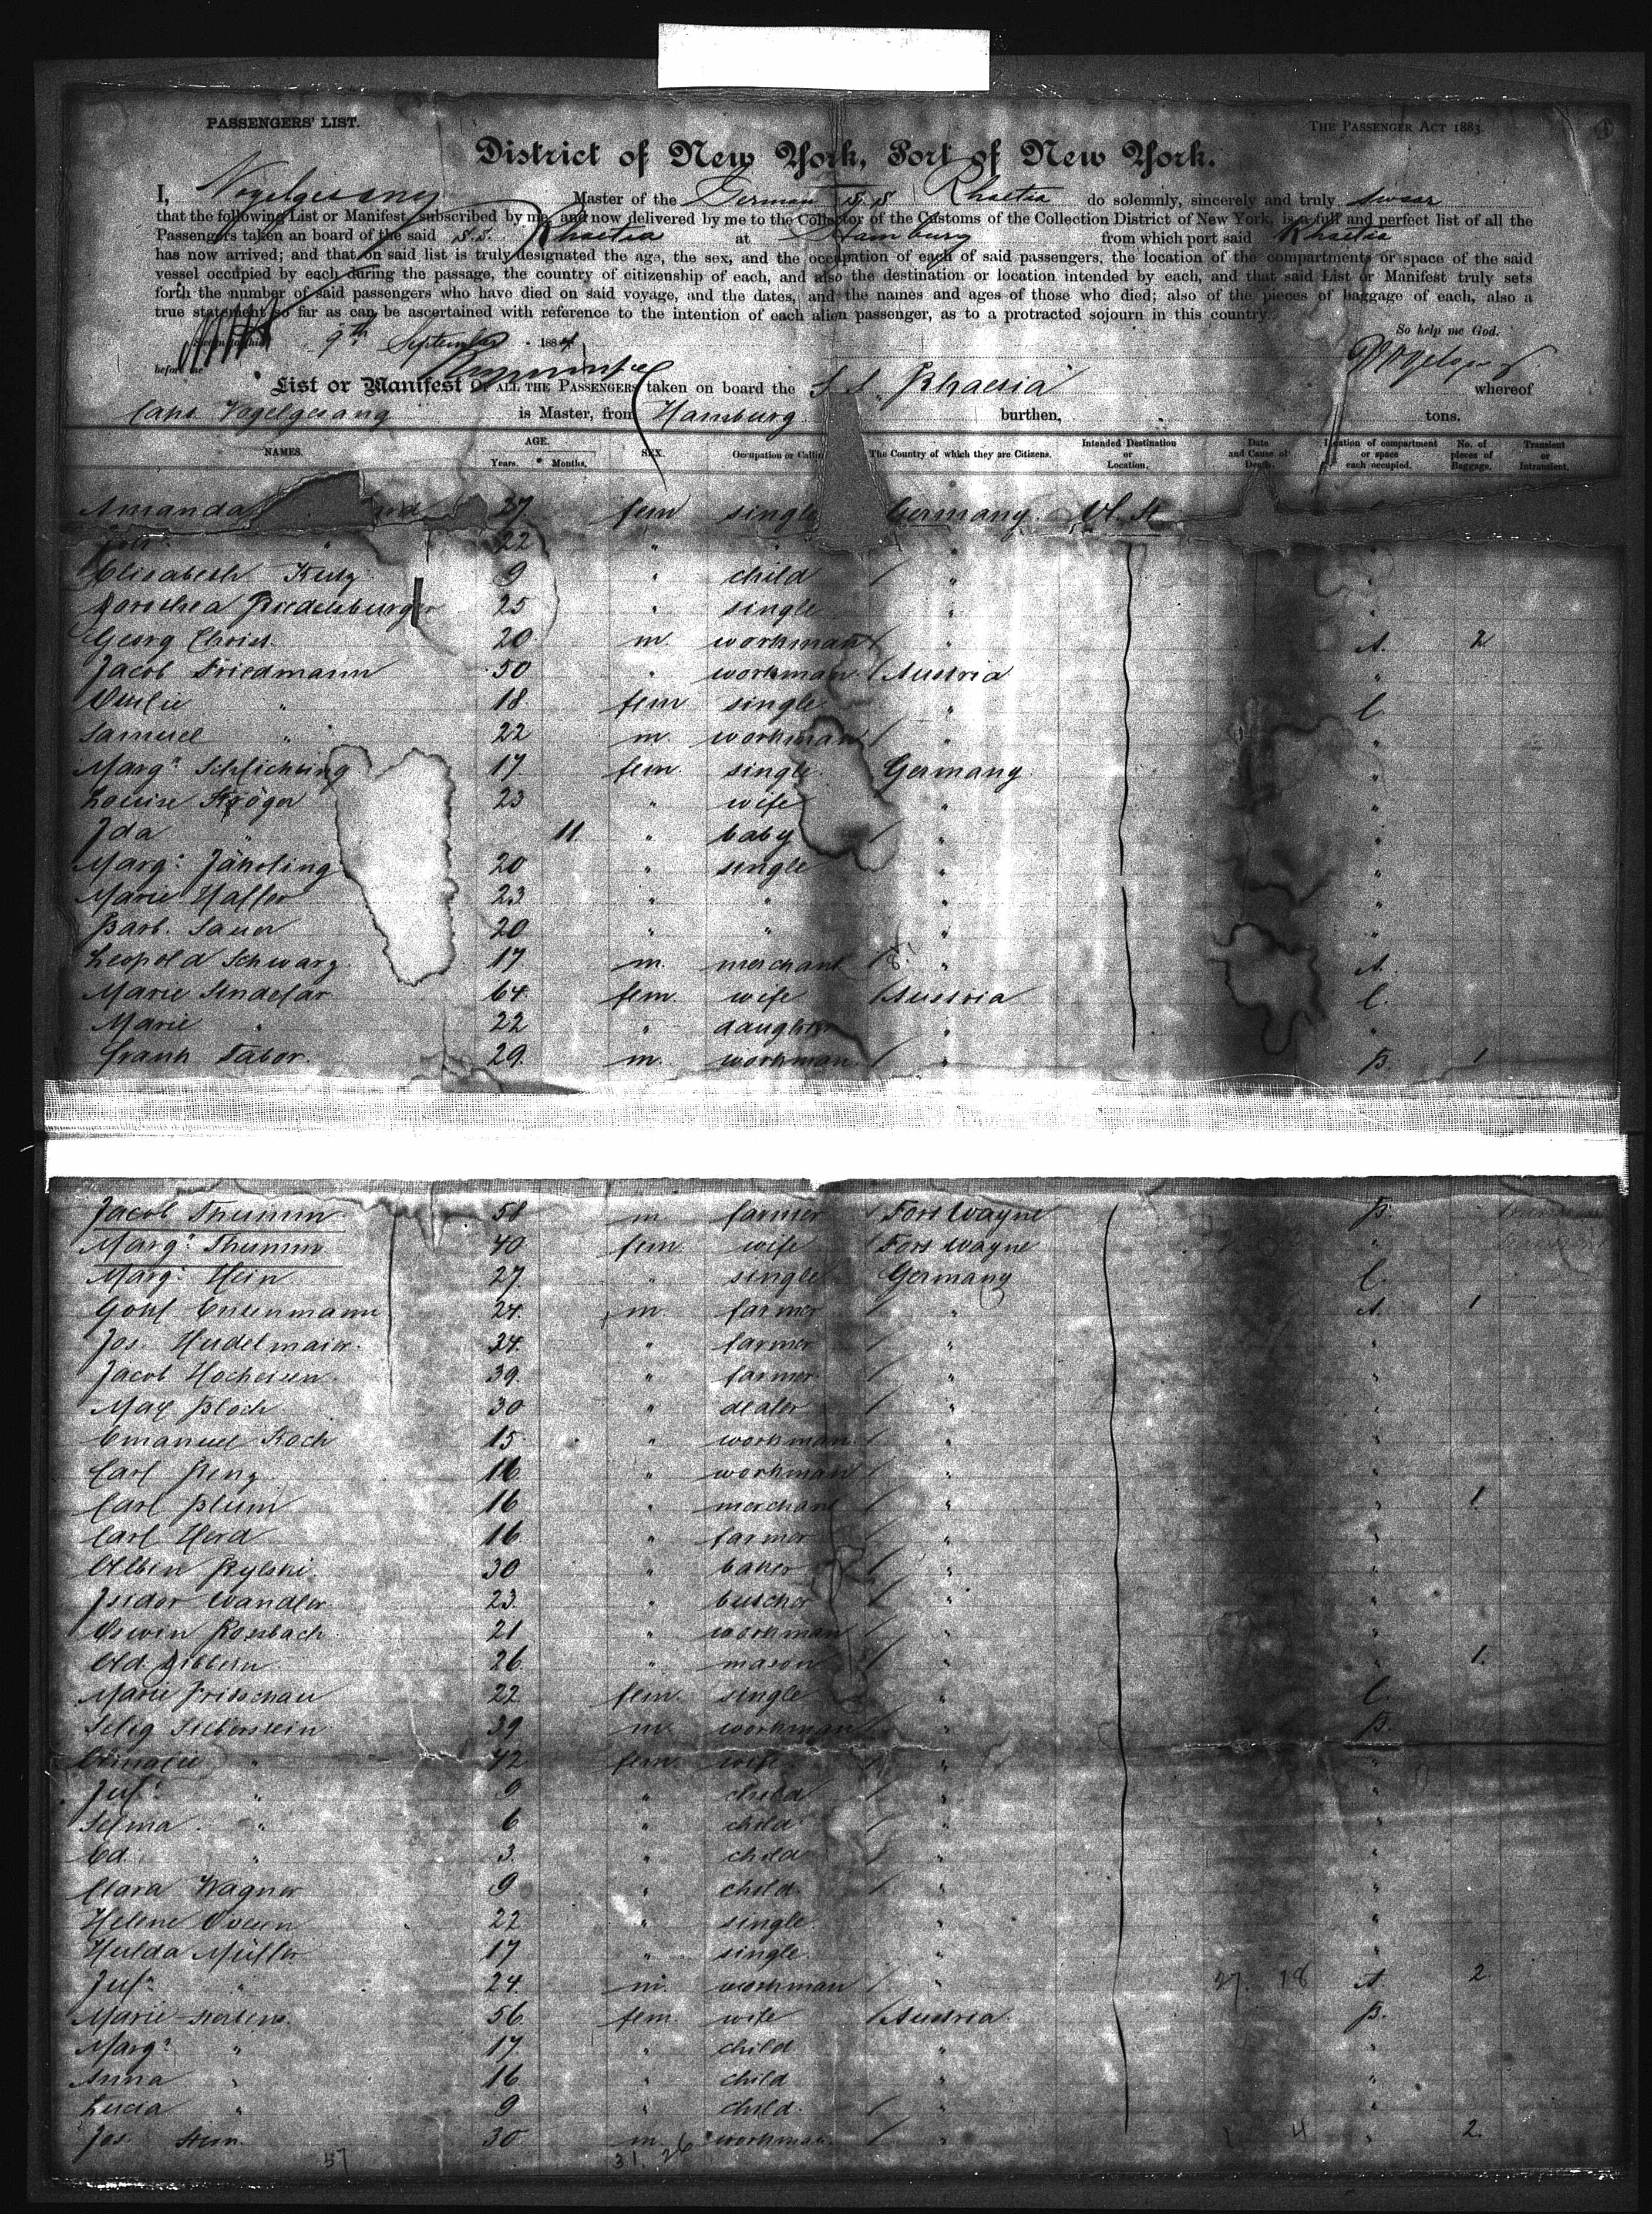 PASSENGERS' LIST.
THE PASSENGER ACT 1883.
District of New York, Port of New York.
I, Vogelgesang Master of the German S.S. Rhaetia do solemnly, sincerely and truly swear
that the following List or Manifest, subscribed by me, and now delivered by me to the Collector of the Customs of the Collection District of New York, is a full and perfect list of all the
Passengers taken an board of the said S.S. Rhaetia at Hamburg from which port said Rhaetia
has now arrived; and that on said list is truly designated the age, the sex, and the occupation of each of said passengers, the location of the compartments or space of the said
vessel occupied by each during the passage, the country of citizenship of each, and also the destination or location intended by each, and that said List or Manifest truly sets
forth the number of said passengers who have died on said voyage, and the dates, and the names and ages of those who died; also of the pieces of baggage of each, also a
true statement so far as can be ascertained with reference to the intention of each alien passenger, as to a protracted sojourn in this country.
So help me God.
Sworn to this 9th September 1884
before me
List or Manifest OF ALL THE PASSENGERS taken on board the S.S. Rhaetia whereof
Capt. Vogelgesang is Master, from Hamburg burthen, tons.
NAMES. AGE. Years. Months. SEX. Occupation or Callin The Country of which they are Citizens. Intended Destination or Location. Date and Cause of Death. Location of compartment or space each occupied. No. of pieces of Baggage. Transient or Intransient.
Amanda 27 fem single Germany
" 22 " "
Elisabeth 9 " child "
Dorothea Riedelsburger 25 " single "
Georg Christ 20 m. workman " A. 2
Jacob Friedmann 50 " workman Austria "
" 18 fem single " C.
Samuel " 22 m. workman " "
Marg. Schlichting 17 fem. single Germany "
Louise Kröger 23 " wife " "
Ida " 11 " baby " "
Marg. 20 " single " "
Marie Haller 23 " " " "
Barb. Sauer 20 " " " "
Leopold Schwarz 17 m. merchant " A.
Marie 64 fem. wife Austria C.
Marie " 22 " daughter " "
Frank Tabor 29 m. workman " B. 1
Jacob Thumm 58 m. farmer Fort Wayne B.
Marg. Thumm 40 fem. wife Fort Wayne "
Marg. Hein 27 " single Germany C.
24 m. farmer " A. 1
Jos. Hudelmaier 34 " farmer " "
Jacob Hocheisen 39 " farmer " "
Max Bloch 30 " dealer " "
Emanuel Koch 15 " workman " "
Carl Renz 16 " workman " "
Carl Blum 16 " merchant " " 1
Carl Herd 16 " farmer " "
Albin Rylski 30 " baker " "
Isidor Wandler 23 " butcher " "
Oswin Rossbach 21 " workman " "
Ad. 26 " mason " " 1.
Marie 22 fem. single " C.
Selig Silberstein 39 m. workman " B.
" 42 fem. wife " "
Jul. " 9 " child " "
Selma " 6 " child " "
Ed. " 3 " child " "
Clara Wagner 9 " child " "
Helene 22 " single " "
Hulda Müller 17 " single " "
Jul. " 24 m. workman " A 2
Marie 56 fem. wife Austria B.
Marg. " 17 " child " "
Anna " 16 " child " "
Lucia " 9 " child " "
Jos. Stein 30 m. workman " " 2.
57 31. 26